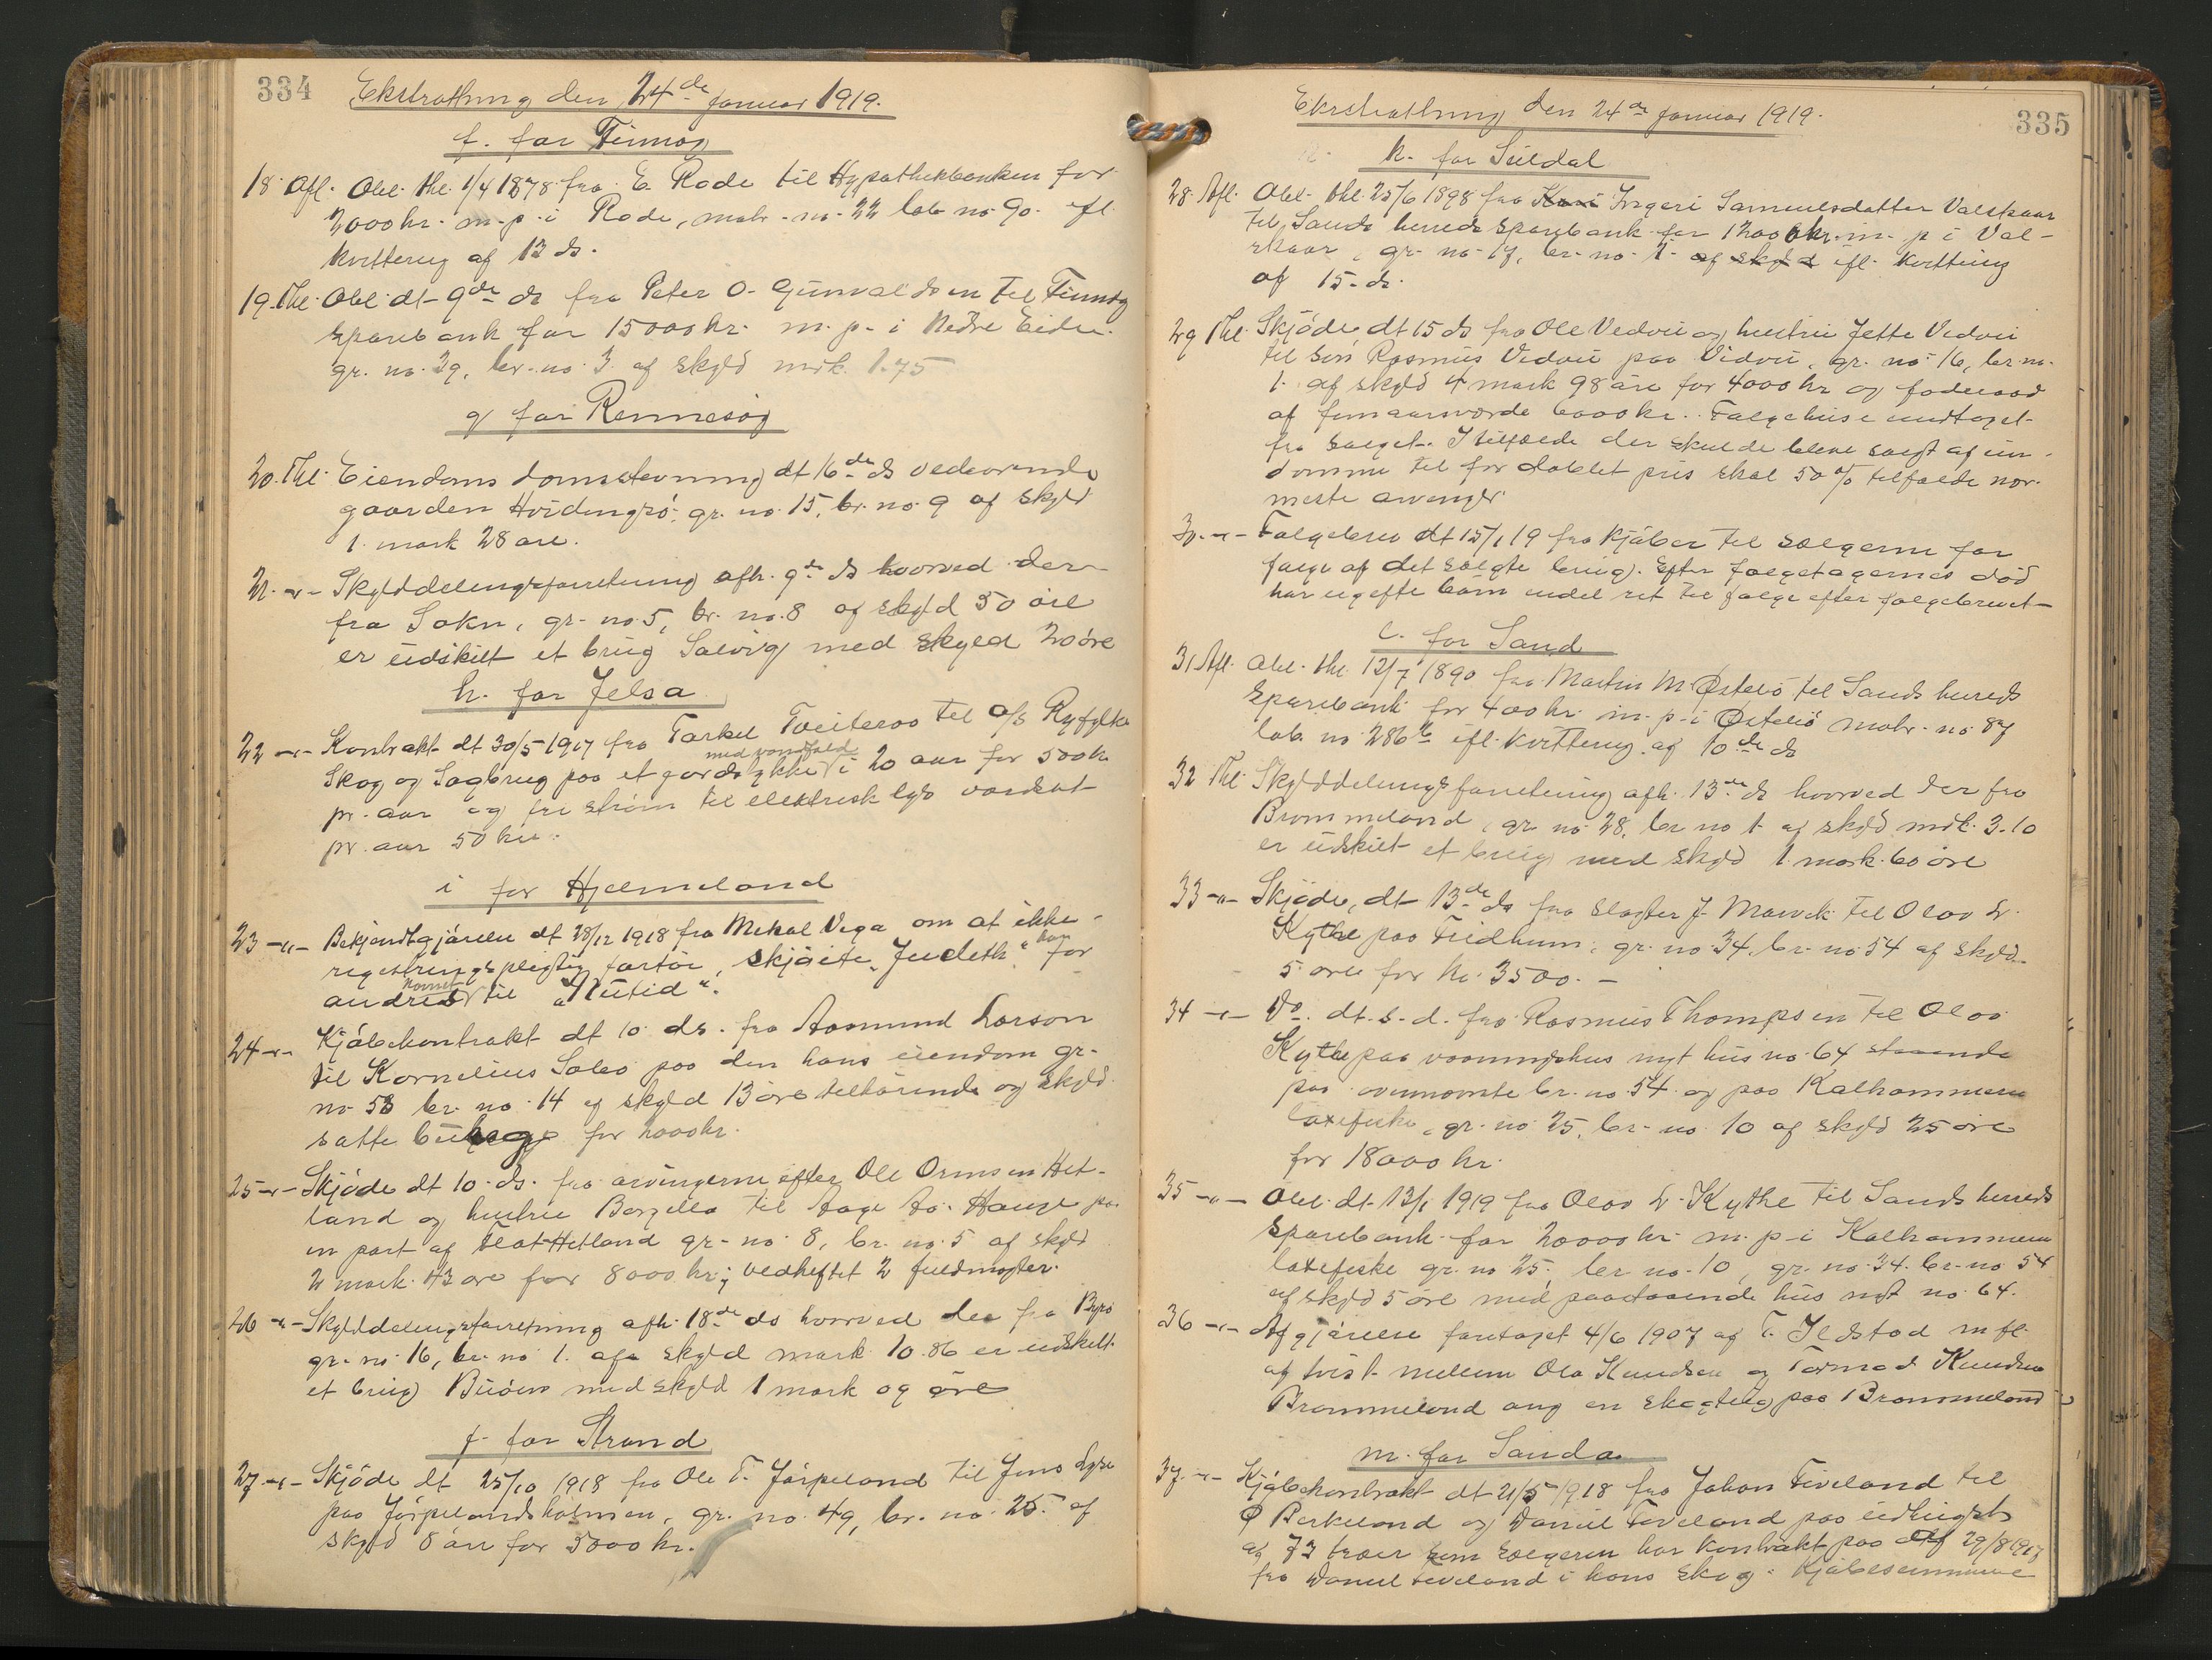 334
Ekstrathing den 24de januar 1919.
f. for Finnøy
18. Afl. Obl. thl. 1/4 1878 fra E. Rode til Hypothekbanken for
2000 kr. m. p. i Rode, matr. no. 22 løb no 90. ifl.
kvittering af 13 ds.
19. Thl. Obl. dt. 9de ds fra Peter O. Gunvaldsen til Finnøy
Sparebank for 15000 kr. m. p. i Nedre Eide.
gr. no. 39, br. no. 3 af skyld mrk. 1.75
g for Rennesøy
20. Thl. Eiendoms domsstevning dt 16de ds vedrørende
gaarden Hvidingsø, gr. no. 15, br. no. 9 af skyld
1 mark 28 øre.
21. -"- Skylddelingsforretning afh. 9de ds hvorved der
fra Sokn, gr. no. 5, br. no. 8 af skyld 50 øre
er udskilt et brug Solvig med skyld 20 øre
h. for Jelsa
22 -"- Kontrakt dt 30/5 1917 fra Torkel Tveiteraa til A/S Ryfylke
med vandfald
Skog og Sagbrug paa et jordstykke i 20 aar for 500 kr.
pr. aar og fri strøm til elektrisk lys værdsat
pr. aar 50 kr.
i for Hjelmeland
23 -"- Bekjendtgjørelse dt 28/12 1918 fra Mikal Vega om at ikke
registreringspligtig fartøi, skjøite "Judeth" for
andres til "Nutid".
navnet
24 -"- Kjøbekontrakt dt 10 ds. fra Aasmund Larson
til Kornelius Sabø paa den hans eiendom gr.
no. 53 br. no. 14 af skyld 13 øre tilhørende og
satte for 2000 kr.
25 -"- Skjøde dt 10 ds. fra arvingerne efter Ole Ormsen Het-
land og hustru Bergilla til Aage Aa. Hauge paa
en part af Hetland gr. no. 8, br. no. 5 af skyld
2 mark 43 øre for 8000 kr; vedheftet 2 fuldmagter.
26 -"- Skylddelingsforretning afh. 18de ds hvorved der fra Byrø
gr. no. 16, br. no 1. af skyld mark 10.86 er udskilt
et brug Buøen med skyld 1 mark og øre
j. for Strand
27 -"- Skjøde dt 25/10 1918 fra Ole T. Jørpeland til Jens Lyse
paa Jørpelandsholmen, gr. no. 49, br. no. 25. af
skyld 8 øre for 3000 kr.
335
Ekstrathing den 24de januar 1919.
k. for Suldal
28. Afl. Obl. thl. 25/6 1898 fra Kari Ingeri Samuelsdatter Valskaar
til Sands herreds Sparebank for 1200 kr. m. p. i Val-
skaar, gr. no. 17, br. no. 1. af skyld ifl. kvittering
af 15. ds.
29 Thl. Skjøde dt 15 ds fra Ole Vedvii og hustru Jette Vedvii
til søn Rasmus Vedvii paa Vidvii, gr. no. 16, br. no.
1. af skyld 4 mark 98 øre for 4000 kr og føderaad
af femaarsværde 6000 kr. Følgehuse undtaget
fra salget. I tilfælde der skulde bleve solgt af eien-
domme til for doblet pris skal 50 % tilfalde nær-
meste arvinger
30. -"- Følgebrev dt 15/1 19 fra kjøber til sælgerne for
følge af det solgte brug. Efter følgetagernes død
har ugifte børn endel ret til følge efter følgebrevet
l. for Sand
31 Afl. Obl. thl. 12/7 1890 fra Martin M. Østebø til Sands herreds
Sparebank for 400 kr. m. p. i Østebø matr. no. 87
løb. no 286 b ifl. kvittering af 10de ds
32 Thl. Skylddelingsforretning afh. 13de ds hvorved der fra
Brommeland, gr. no. 28, br. no 1. af skyld mrk. 3.10
er udskilt et brug med skyld 1 mark 60 øre
33 -"- Skjøde, dt 13de ds fra slagter J. Marvik til Olav L.
Kythe paa Fredheim, gr. no. 34. br. no 54 af skyld
5 øre for kr. 3500.-
34 -"- Do. dt. s. d. fra Rasmus Thompsen til Olav
Kythe paa vaaningshus nyt hus no. 64 staaende
paa ovennævnte br. no. 54. og paa Kalhammeren
laxefiske, gr. no 25, br. no. 10 af skyld 25 øre
for 18000 kr.
35 -"- Obl. dt. 13/1 1919 fra Olav L. Kythe til Sands herreds
Sparebank for 20000 kr. m. p. i Kalhammeren
laxefiske gr. no 25, br. no. 10, gr. no. 34. br. no 54
af skyld 5 øre med paastaaende hus nyt no. 64.
36 -"- Afgjørelse foretaget 4/6 1907 af T. Ilstad m fl.
af tvist mellem Ola Knudsen og Tormod Knudsen
Brommeland ang en skogteig paa Brommeland
m. for Sauda
37. -"- Kjøbekontrakt dt 21/5 1918 fra Johan Fiveland til
Ø Berkeland og Daniel Fiveland paa udhugst
af 73 træer som sælgeren har kontrakt paa af 29/8 1917
fra Daniel Fiveland i hans skog. Kjøbesummen